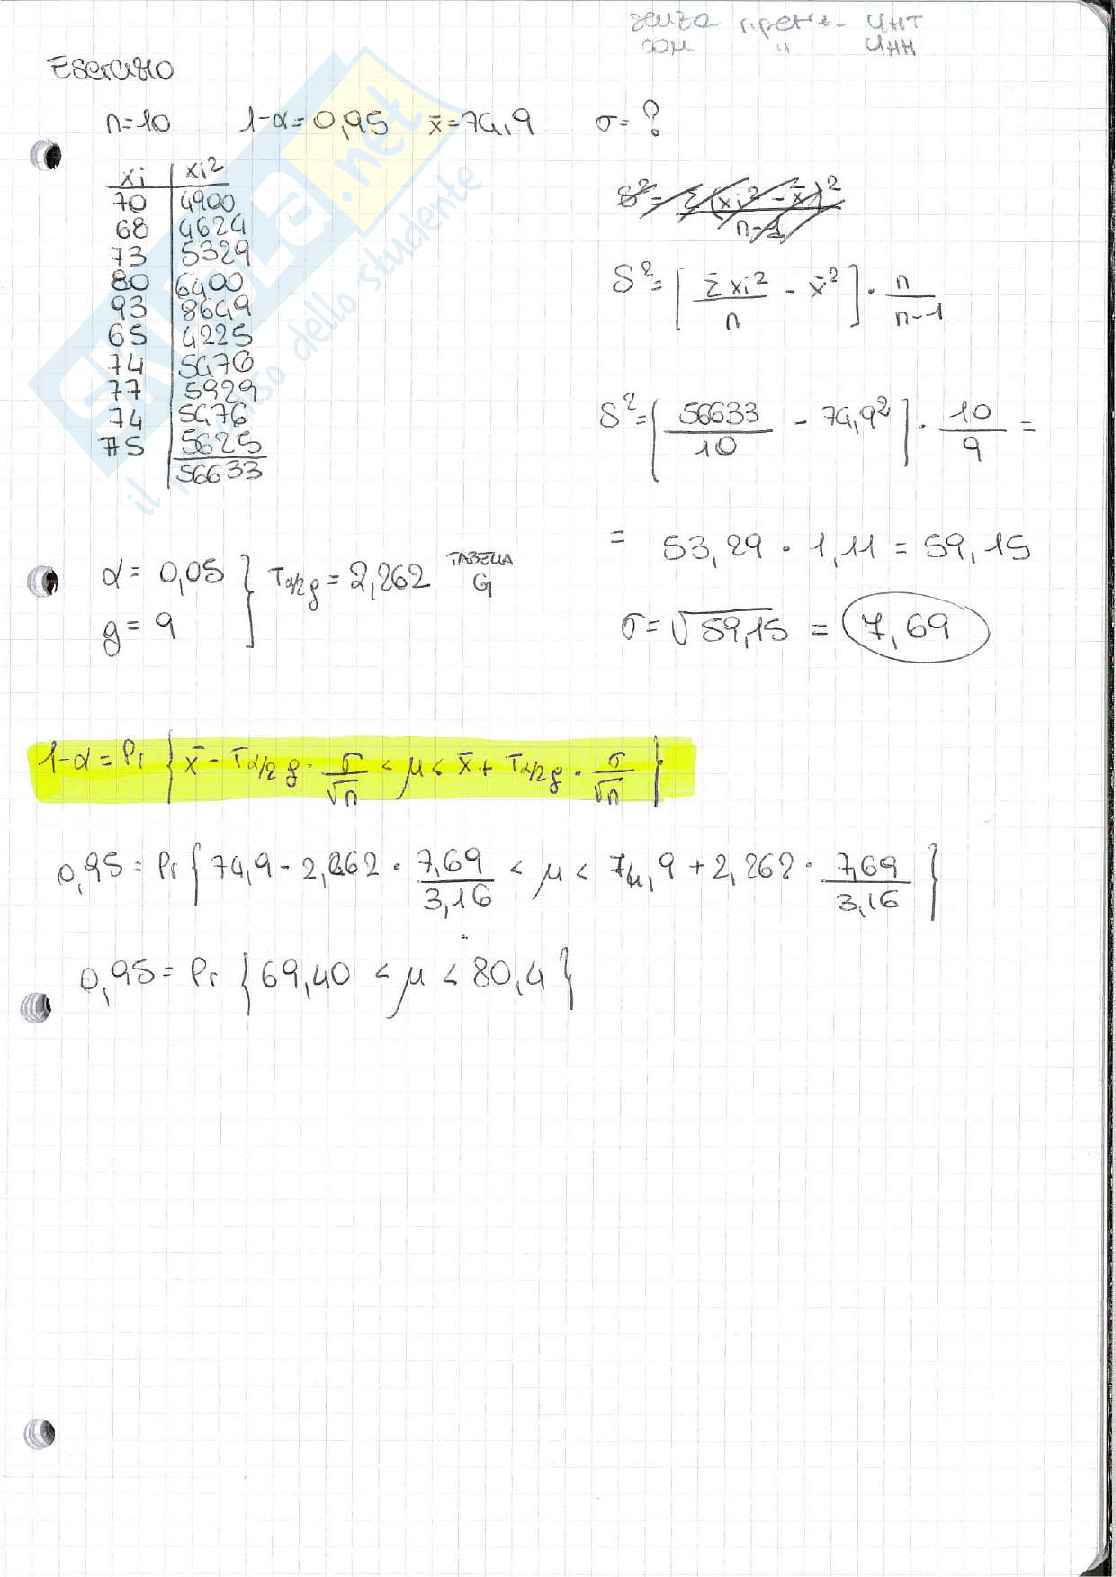 senza ripeti- UHT
con " UHH
Esercizio
n=10 1-α=0,95 x̄=74,9 σ=?
xi | xi²
70 | 4900
68 | 4624
73 | 5329
80 | 6400
93 | 8649
65 | 4225
74 | 5476
77 | 5929
74 | 5476
75 | 5625
56633
S² = Σ(xi² - x̄)² / n-1
S² = [Σxi²/n - x̄²] · n/n-1
S² = [56633/10 - 74,9²] · 10/9 =
= 53,29 · 1,11 = 59,15
σ = √59,15 = 7,69
α = 0,05
g = 9
} Tα/2 g = 2,262 TABELLA G
1-α = Pr { x̄ - Tα/2 g · σ/√n < μ < x̄ + Tα/2 g · σ/√n }
0,95 = Pr { 74,9 - 2,262 · 7,69/3,16 < μ < 74,9 + 2,262 · 7,69/3,16 }
0,95 = Pr { 69,40 < μ < 80,4 }
SKUOLA.net
il paradiso dello studente